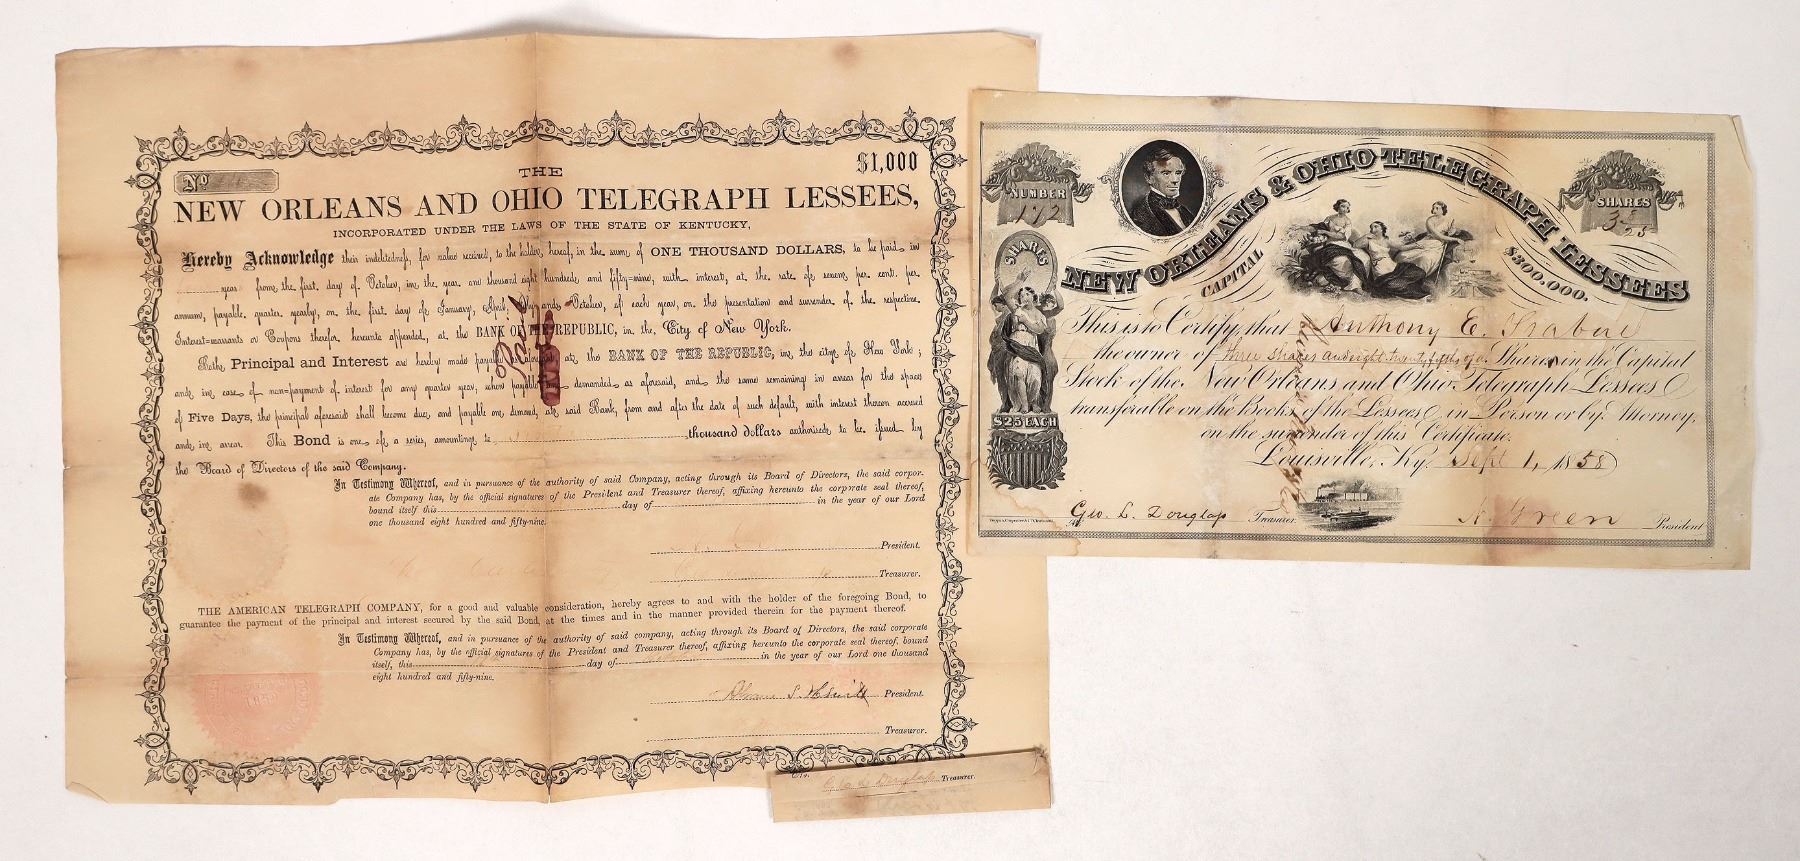 Nº
$1,000
THE
NEW ORLEANS AND OHIO TELEGRAPH LESSEES,
INCORPORATED UNDER THE LAWS OF THE STATE OF KENTUCKY,
Hereby Acknowledge their indebtedness, for value received, to the holder, hereof, in the sum of ONE THOUSAND DOLLARS, to be paid in
year from the first day of October, in the year one thousand eight hundred and fifty-nine, with interest, at the rate of seven per cent. per
annum, payable quarter yearly, on the first day of January, April, July and October, of each year, on the presentation and surrender of the respective
Interest-warrants or Coupons therefor hereunto appended, at the BANK OF THE REPUBLIC, in the City of New York.
Both Principal and Interest are hereby made payable as aforesaid, at the BANK OF THE REPUBLIC, in the city of New York;
and, in case of non-payment of interest for any quarter year, when payable and demanded as aforesaid, and the same remaining in arrear for the space
of Five Days, the principal aforesaid shall become due, and payable one demand, at said Bank, from and after the date of such default, with interest thereon accrued
and in arrear. This Bond is one of a series, amounting to thousand dollars authorised to be issued by
the Board of Directors of the said Company.
In Testimony Whereof, and in pursuance of the authority of said Company, acting through its Board of Directors, the said corpor-
ate Company has, by the official signatures of the President and Treasurer thereof, affixing hereunto the corporate seal thereof,
bound itself this day of in the year of our Lord
one thousand eight hundred and fifty-nine.
President.
Treasurer.
THE AMERICAN TELEGRAPH COMPANY, for a good and valuable consideration, hereby agrees to and with the holder of the foregoing Bond, to
guarantee the payment of the principal and interest secured by the said Bond, at the times and in the manner provided therein for the payment thereof.
In Testimony Whereof, and in pursuance of the authority of said company, acting through its Board of Directors, the said corporate
Company has, by the official signatures of the President and Treasurer thereof, affixing hereunto the corporate seal thereof, bound
itself, this day of in the year of our Lord one thousand
eight hundred and fifty-nine.
President.
Treasurer.
Geo. L. Douglap Treasurer.
NUMBER
172
NEW ORLEANS & OHIO TELEGRAPH LESSEES
SHARES
3 8/25
CAPITAL
$300.000.
SHARES
$25 EACH
This is to Certify, that Anthony E.
the owner of three shares and eight twenty fifths of a Shares in the Capital
Stock of the New Orleans and Ohio Telegraph Lessees
transferable on the Books of the Lessees in Person or by Attorney
on the surrender of this Certificate.
Louisville, Ky. Sept 1, 1858
Geo. L. Douglap Treasurer
N. Green President